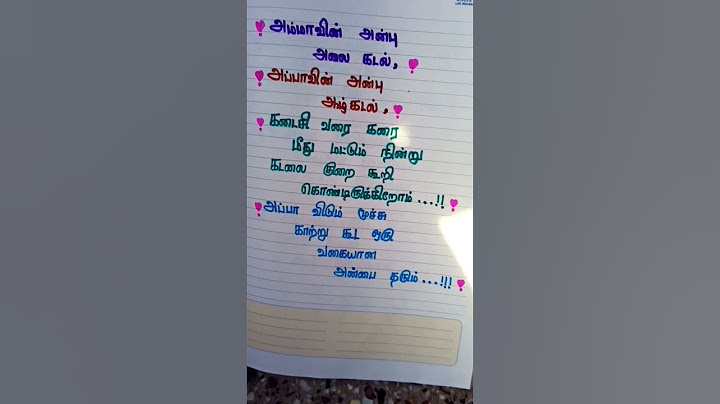 அம்மாவின் அன்பு
அலை கடல்,
அப்பாவின் அன்பு
ஆழ்கடல்,
கடைசி வரை கரை
மீது மட்டும் நின்று
கடலை குறை கூறி
கொண்டிருக்கிறோம்...!!
அப்பா விடும் மூச்சு
காற்று கூட ஒரு
வகையான
அன்பை தரும்...!!!